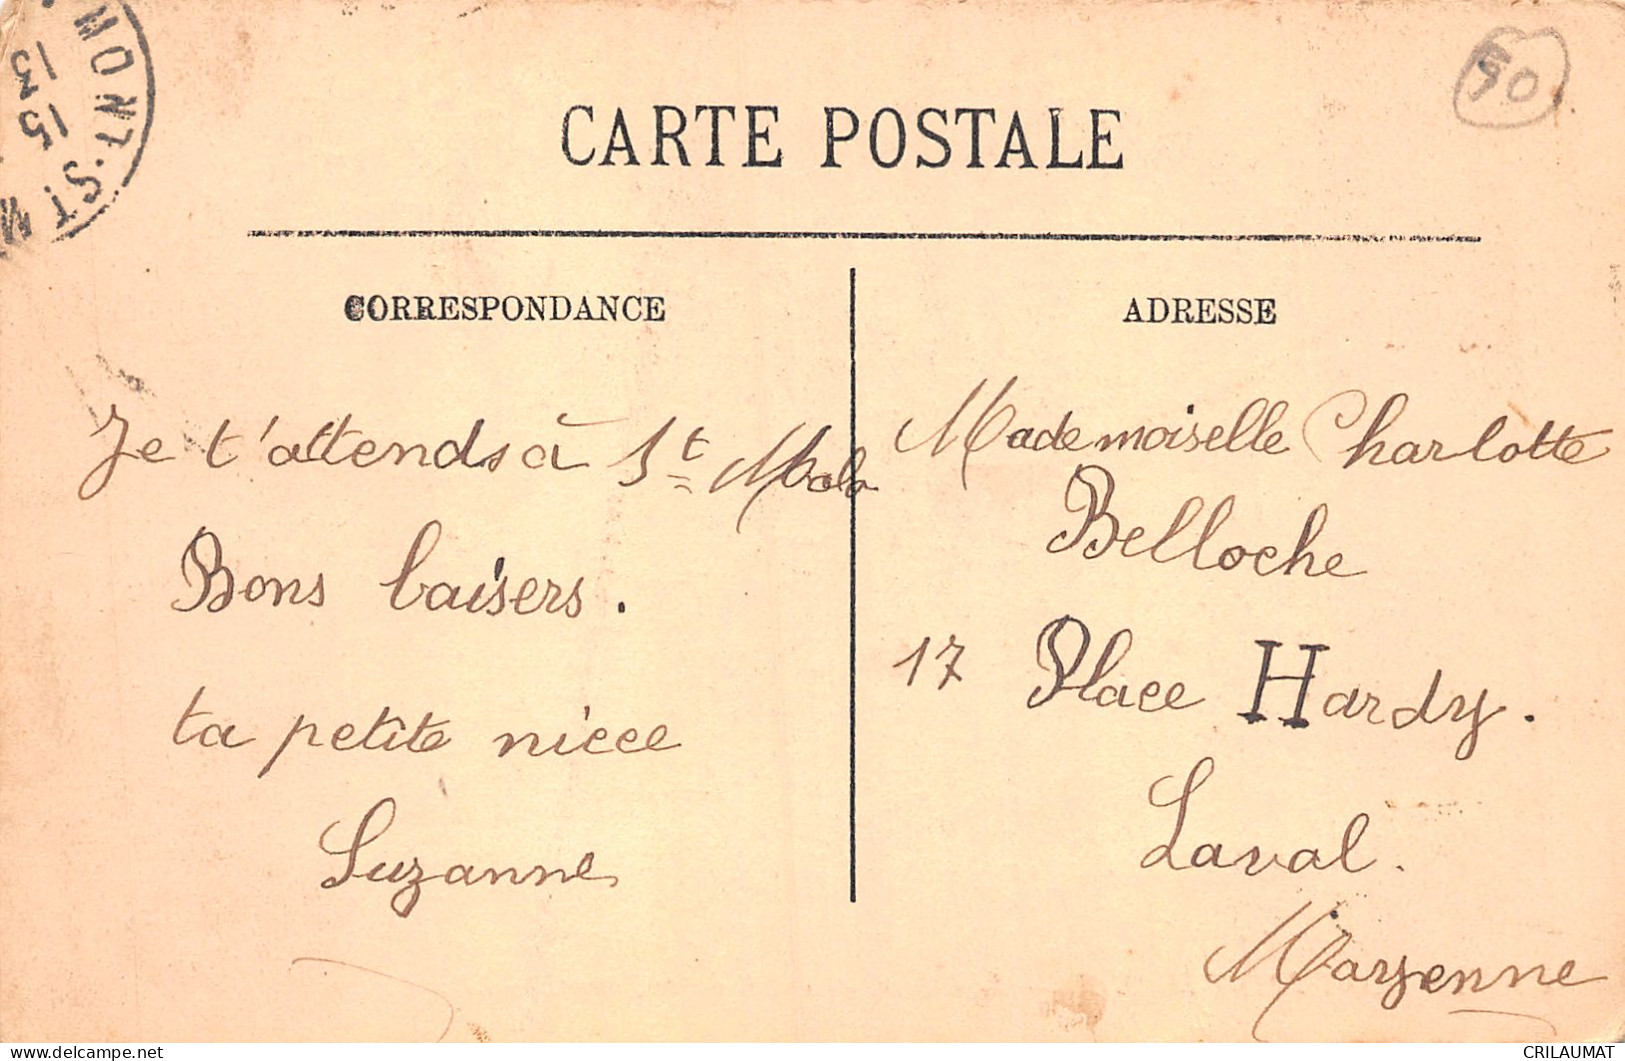 MONT-ST-M
13
15
50
CARTE POSTALE
CORRESPONDANCE
Je t'attends à St Malo
Bons baisers.
ta petite nièce
Suzanne
ADRESSE
Mademoiselle Charlotte
Belloche
17 Place Hardy.
Laval.
Mayenne
CRILAUMAT